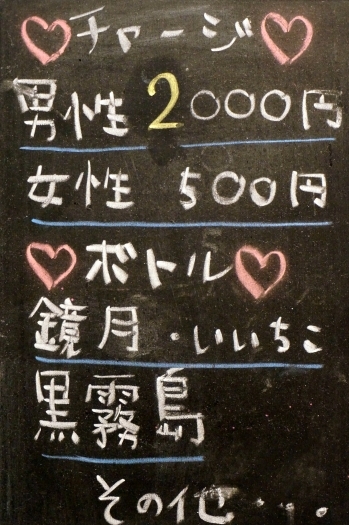 ♡チャージ♡
男性 2000円
女性 500円
♡ボトル♡
鏡月・いいちこ
黒霧島
その他・・。